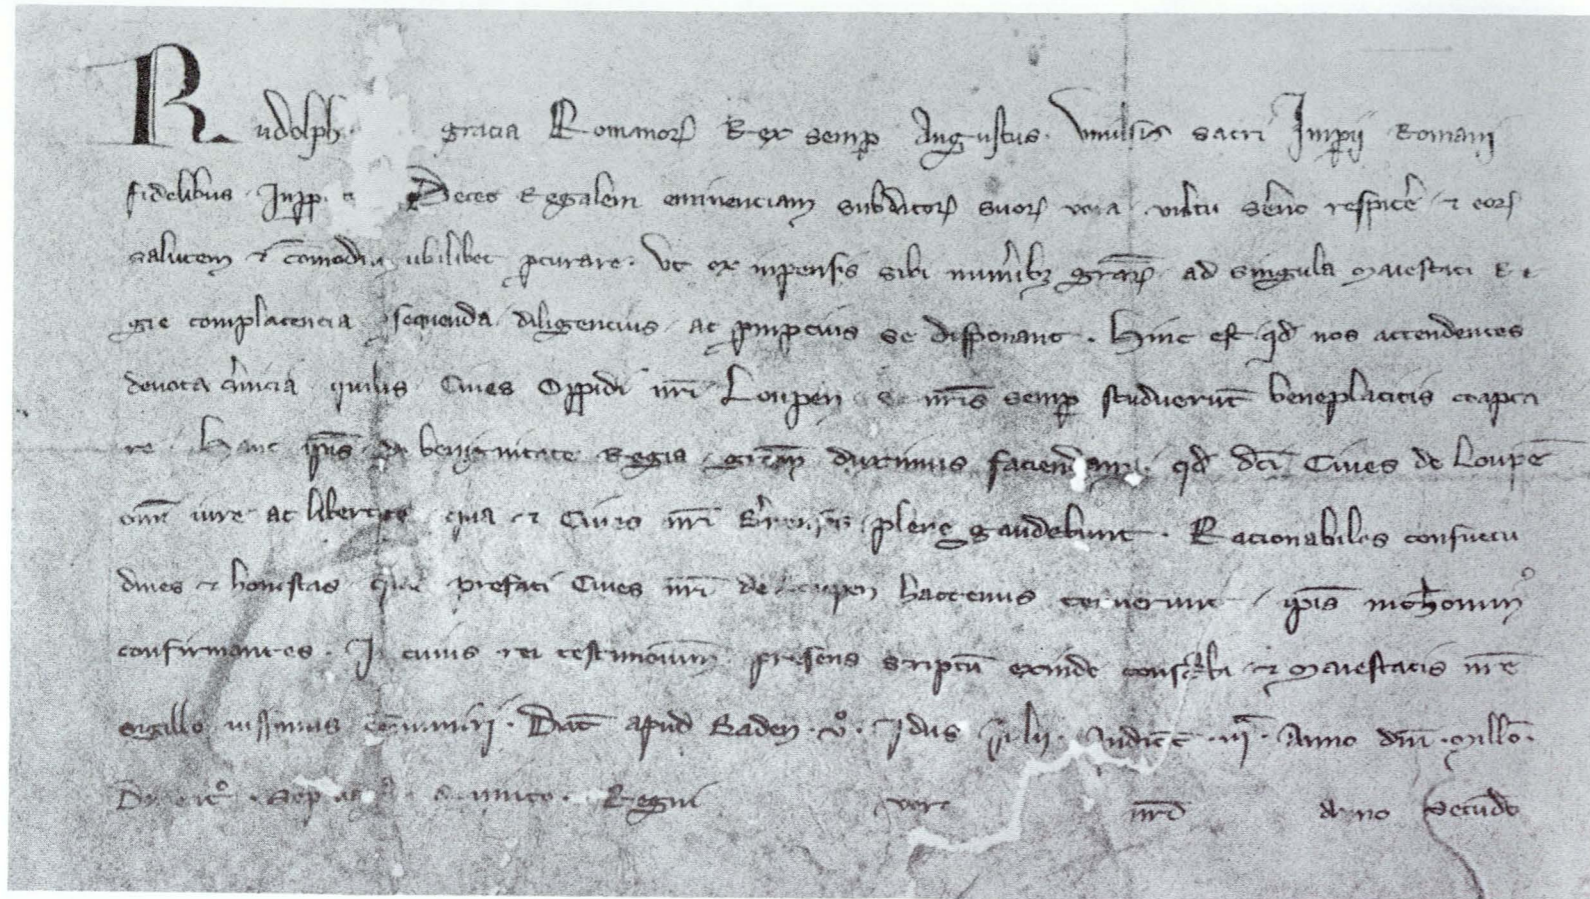 Rudolph gracia Romanor Rex semp Augustus . Vniusis sacri Impii Romani
fidelibus . Inpp . Decet Regalem eminenciam subditor suor vota vultu seno respice . et eor
salutem et comoda ubilibet pcurare . Vt ex inpensis sibi munibz grar ad singula maiestati Re
gie complacencia sequenda diligencius ac pmpcius se disponant . Hinc est qd nos attendentes
devota suicia quibus Ciues Oppidi nri Loupen nris semp studuerut beneplacitis coapta
re . Hanc ipis de benignitate Regia gram duximus faciendam . qd dci Ciues de Loupe
omi iure ac libertate qua et Ciues nri Bnens plene gaudebunt . Racionabiles consuetu
dines et honestas quas prefati Ciues nri de Loupen hactenus tenuerunt / ipis
confirmantes . In cuius rei testimonium presens scriptu exinde conscribi et Maiestatis nre
sigillo iussimus comuniri . Dat apud Baden . vo . Idus Julii Indict . iii . Anno dni . Millo .
Ducto . Septuago . quinto . Regni vero nri anno Secundo